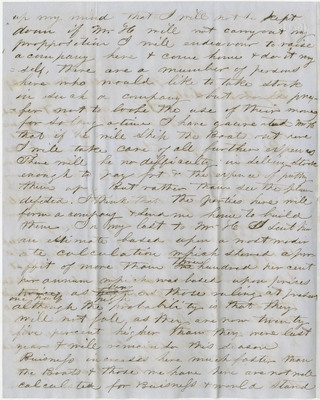 up my mind that I will not be kept
down if Mr. H will not carry out my
proposition I will endeavour to raise
a company here & come home & do it my
self, there are a number of persons
here who would like to take stock
in such a company but would pre
fer not to lose the use of their money
for so long a time I have assured Mr H
that if he will ship the Boats out here
I will take care of all further expenses
There will be no difficulty in selling stock
enough to pay frt & the expense of putting
them up But rather than see the plan
defeated, I think that the parties here will
form a company & send me home to build
them, In my last to Mr H I sent him
an estimate based upon a most mode
rate calculation which showed a pro
fit of more than three hundred per cent
per annum which was based upon prices
one fifty of those ruling at present
although the probability is that they
will not fall as they are now twenty
five percent higher than they were last
year & will remain so this season
Business increases here much faster than
the Boats & those we have here are not well
calculated for Business & would stand